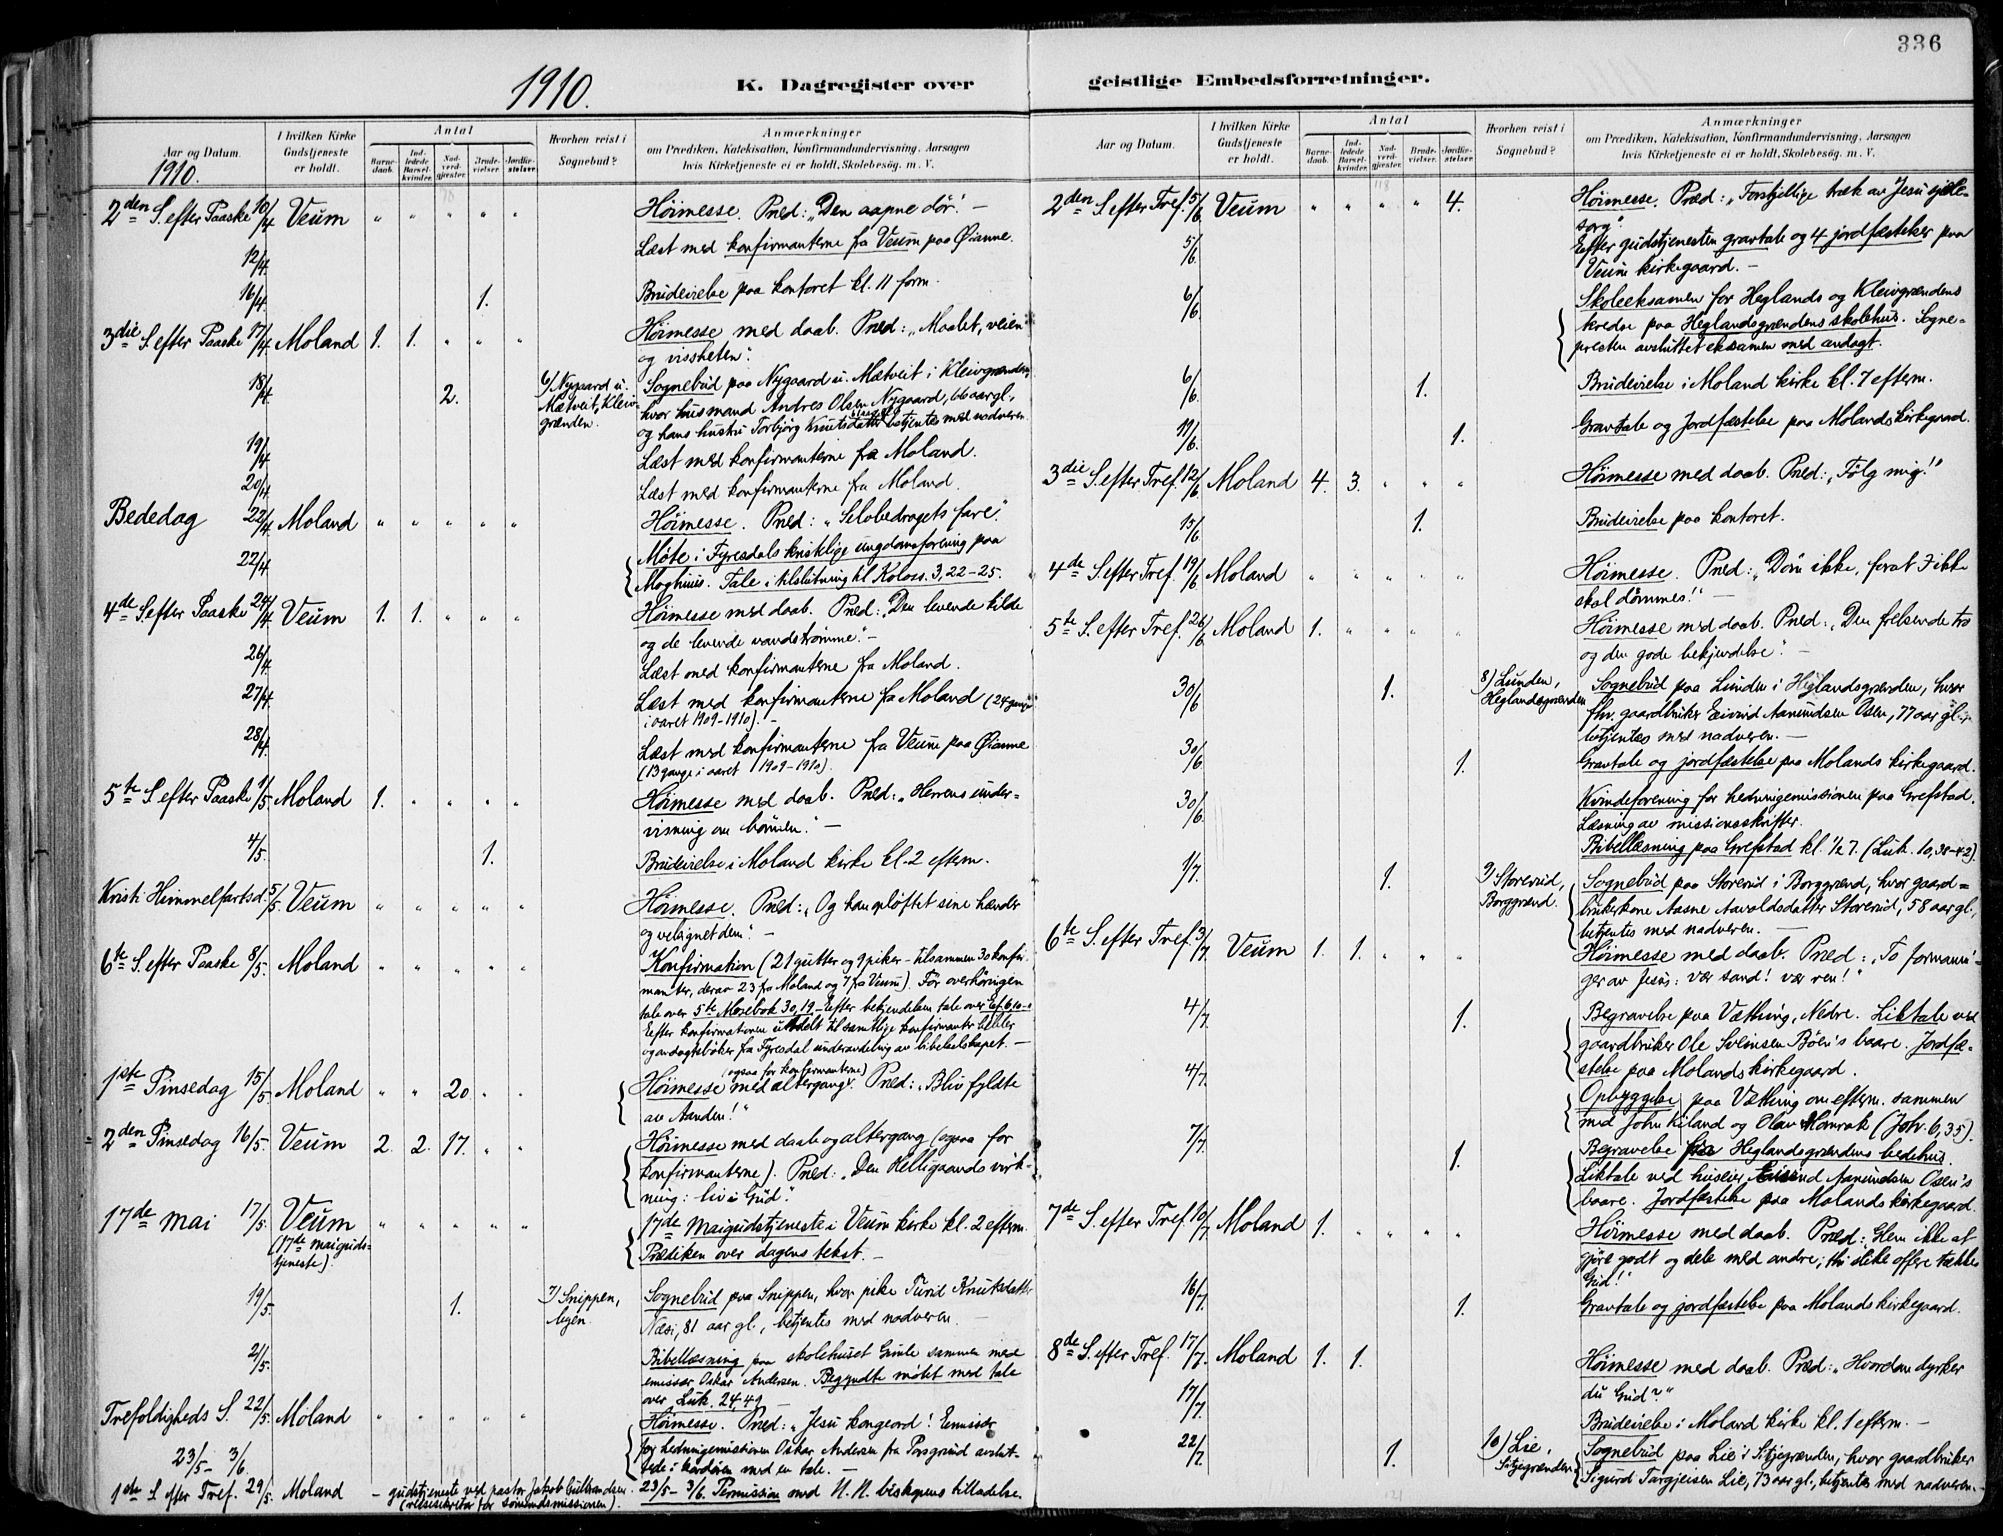 336
1910.
K. Dagregister over
geistlige Embedsforretninger.
Aar og Datum.
1910.
I hvilken Kirke Gudstjeneste er holdt.
Antal
Barnedaab.
Indledede Barselkvinder.
Nadverdgjester.
Brudevielser.
Jordfæstelser.
Hvorhen reist i Sognebud?
Anmærkninger
om Prædiken, Katekisation, Konfirmandundervisning, Aarsagen
hvis Kirketjeneste ei er holdt, Skolebesøg. m. V.
2den S. efter Paaske 10/4 Veum " " " " " Høimesse. Præd: „Den aapne dør". —
12/4 Læst med konfirmanterne fra Veum paa Øianne.
16/4 1. Brudevielse paa kontoret kl. 11 form.
3die S. efter Paaske 17/4 Moland 1. 1. " " " Høimesse med daab. Præd: „Maalet, veien
og vissheten".
18/4 2. 6) Nygaard u. Mætveit, Kleivgrænden. Sognebud paa Nygaard u. Mætveit i Kleivgrænden,
hvor husmand Andres Olsen Nygaard, 66 aar gl.,
og hans hustru Torbjørg Knutsdatter betjentes med nadveren
19/4 Læst med konfirmanterne fra Moland.
20/4 Læst med konfirmanterne fra Moland.
Bededag 22/4 Moland " " " " " Høimesse. Præd: „Selvbedragets fare".
22/4 Møte i Fyresdals kristelige ungdomsforening paa
Moghuus. Tale i tilslutning til Koloss. 3, 22-25.
4de S. efter Paaske 24/4 Veum 1. 1. " " " Høimesse med daab. Præd: „Den levende kilde
og de levende vandstrømme". —
26/4 Læst med konfirmanterne fra Moland.
27/4 Læst med konfirmanterne fra Moland (24 gange
i aaret 1909-1910). —
28/4 Læst med konfirmanterne fra Veum paa Øianne
(13 gange i aaret 1909-1910).
5te S. efter Paaske 1/5 Moland 1. " " " " Høimesse med daab. Præd: „Herrens under-
visning om bønnen." —
4/5. 1. Brudevielse i Moland kirke kl. 2 efterm.
Kristi Himmelfartsd. 5/5. Veum " " " " " Høimesse. Præd: „Og han opløftet sine hænder
og velsignet dem". —
6te S. efter Paaske 8/5. Moland " " " " " Konfirmation (21 gutter og 9 piker - tilsammen 30 konfir-
manter, derav 23 fra Moland og 7 fra Veum). Før overhøringen
tale over 5te Mosebok 30,19. - Efter bekjendelsen tale over Ef. 6,10
Efter konfirmationen utdelt til samtlige konfirmanter bibler
og andagtsbøker fra Fyresdal underavdeling av bibelselskapet. —
1ste Pinsedag 15/5. Moland " " 20 " " Høimesse med altergang (ogsaa for konfirmanterne). Præd: „Bliv fyldte
av Aanden!"
2den Pinsedag 16/5. Veum 2. 2. 17. " " Høimesse med daab og altergang (ogsaa for
konfirmanterne). Præd: „Den Helligaands virk-
ning: liv i Gud".
17de mai 17/5. Veum (17de maiguds-tjeneste). " " " " " 17de maigudstjeneste i Veum kirke kl. 2 efterm.
Prædiken over dagens tekst. —
19/5. 1. 7) Snippen, Sognebud paa Snippen, hvor pike Turid Knutsdatter
Næsi, 81 aar gl., betjentes med nadveren. —
21/5. Bibellæsning paa skolehuset Grimle sammen med
emissær Oskar Andersen. Begyndte møtet med tale
over Luk. 24 49
Trefoldigheds S. 22/5. Moland " " " " " Høimesse. Præd: „Jesu kongeord! Emissær
for hedningemissionen Oskar Andersen fra Porsgrund avslut-
tede i kordøren med en tale. —
23/5 - 3/6. 23/5 - 3/6. Permission med H. H. biskopens tilladelse.
1ste S. efter Tref. 29/5. Moland - gudstjeneste ved pastor Jakob Gulbrandsen.
(reisesekretær for sømandsmissionen).
Aar og Datum.
I hvilken Kirke Gudstjeneste er holdt.
Antal
Barnedaab.
Indledede Barselkvinder.
Nadverdgjester.
Brudevielser.
Jordfæstelser.
Hvorhen reist i Sognebud?
Anmærkninger
om Prædiken, Katekisation, Konfirmandundervisning, Aarsagen
hvis Kirketjeneste ei er holdt, Skolebesøg. m. V.
2den S. efter Tref. 5/6 Veum " " " " 4. Høimesse. Præd: „Forskjellige træk av Jesu sjele-
sorg".
5/6. Efter gudstjenesten gravtale og 4 jordfæstelser paa
Veum kirkegaard. —
6/6. Skoleeksamen for Heglands og Kleivgrændens
kredse paa Heglandsgrændens skolehus. Sogne-
presten avsluttet eksamen med andagt.
6/6. 1. Brudevielse i Moland kirke kl. 7 efterm.
11/6. 1. Gravtale og Jordfæstelse paa Molands kirkegaard.
3die S. efter Tref. 12/6 Moland 4. 3. " " " Høimesse med daab. Præd: „Følg mig!"
15/6 1. Brudevielse paa kontoret.
4de S. efter Tref. 19/6 Moland " " " " " Høimesse. Præd: „Døm ikke, forat I ikke
skal dømmes!" —
5te S. efter Tref. 26/6 Moland 1. " " " " Høimesse med daab. Præd: „Den frelsende tro
og den gode bekjendelse". —
30/6 1. 8) Lunden, Heglandsgrænden Sognebud paa Lunden i Heglandsgrænden, hvor
fhv. gaardbruker Eivind Aanundsen Osen, 77 aar gl.
betjentes med nadveren. —
30/6. 1. Gravtale og jordfæstelse paa Molands kirkegaard.
30/6. Kvindeforening for hedningemissionen paa Grefstad.
Læsning av missionsskrifter.
Bibellæsning paa Grefstad kl. ½ 7. (Luk. 10,38-42).
1/7. 1. 9) Storerud, Borggrænd. Sognebud paa Storerud i Borggrænd, hvor gaard=
brukerkone Aasne Aavaldsdatter Storerud, 58 aar gl.,
betjentes med nadveren. —
6te S. efter Tref. 3/7. Veum 1. 1. " " " Høimesse med daab. Præd: „To formanin-
ger av Jesus: vær sand! vær ren!"
4/7. 1. Begravelse paa Vætting, Nedre. Liktale ved
gaardbruker Ole Sveinsen Bøen's baare. Jordfæ-
stelse paa Molands kirkegaard.
4/7. Opbyggelse paa Vætting om efterm. sammen
med John Kiland og Olav Momrak (Joh. 6,35).
7/7. 1. Begravelse fra Heglandsgrændens bedehus.
Liktale ved huseier Eivind Aanundsen Osen's
baare. Jordfæstelse paa Molands kirkegaard.
7de S. efter Tref. 10/7 Moland 1. " " " " Høimesse med daab. Præd: Glem ikke at
gjøre godt og dele med andre; thi slike offere tækkes
Gud!"
16/7. 1. Gravtale og jordfæstelse paa Molands kirkegaard.
8de S. efter Tref. 17/7. Moland 1. 1. Høimesse med daab. Præd: „Hvordan dyrker
du Gud?"
17/7. Brudevielse i Moland kirke kl. 1 efterm. —
22/7. 1. 10) Lie, Sitjegrænden Sognebud paa Lie i Sitjegrænden, hvor gaardbruker
Sigurd Targjeisen Lie, 73 aar gl., betjentes med nadveren. -